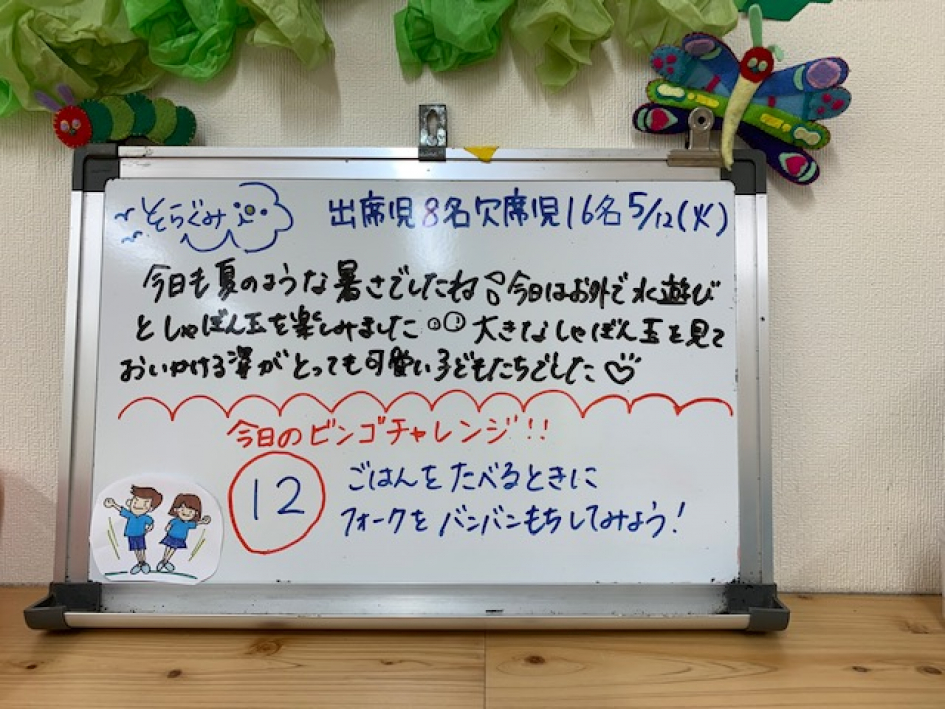 そらぐみ 出席児8名欠席児16名5/12(火)
今日も夏のような暑さでしたね！今日はお外で水遊び
としゃぼん玉を楽しみました○○大きなしゃぼん玉を見て
おいかける姿がとっても可愛い子どもたちでした♡
今日のビンゴチャレンジ!!
12 ごはんをたべるときに
フォークをバンバンもちしてみよう!